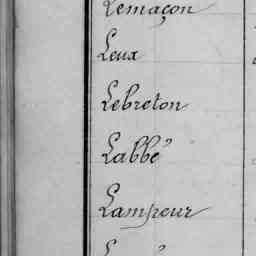 Lemaçon
Leux
Lebreton
Labbé
Lampeur